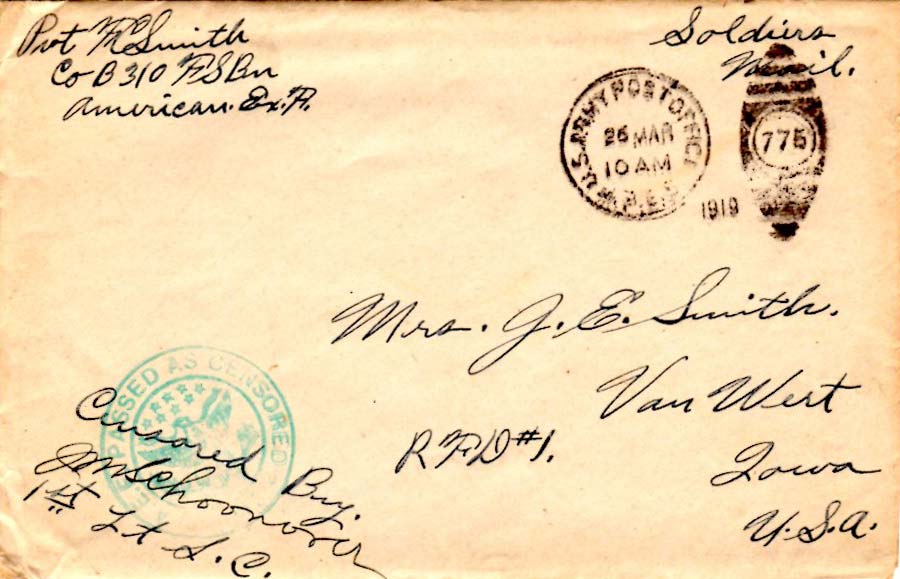 Pvt F C Smith
Co B 310 F S Bn
American. Ex. F.
Soldiers
Mail.
U.S. ARMY POST OFFICE
26 MAR
10 AM
1919
775
Mrs. J. E. Smith.
Van Wert
R F D #1.
Iowa
U.S.A.
PASSED AS CENSORED
A.E.F.
Censored By.
J M Schoonover
1st Lt S. C.